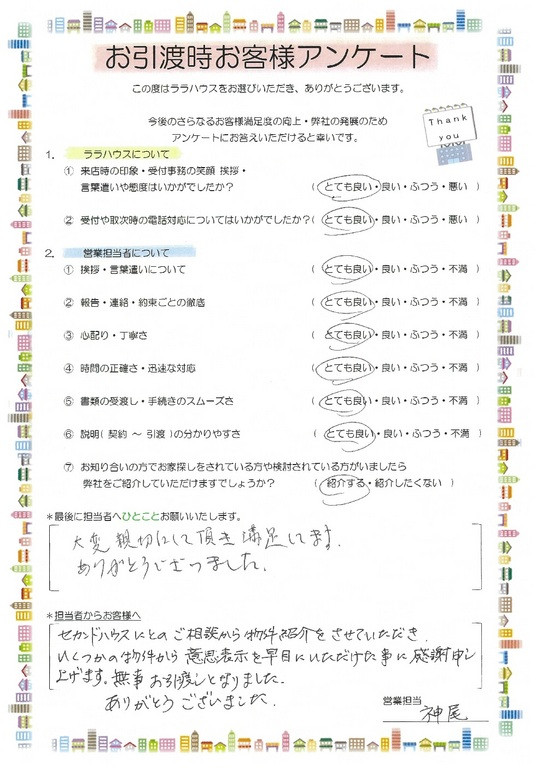 お引渡時お客様アンケート
この度はララハウスをお選びいただき、ありがとうございます。
今後のさらなるお客様満足度の向上・弊社の発展のため
アンケートにお答えいただけると幸いです。
Thank
you
1. ララハウスについて
① 来店時の印象・受付事務の笑顔 挨拶・
言葉遣いや態度はいかがでしたか? ( とても良い・良い・ふつう・悪い )
② 受付や取次時の電話対応についてはいかがでしたか?( とても良い・良い・ふつう・悪い )
2. 営業担当者について
① 挨拶・言葉遣いについて ( とても良い・良い・ふつう・不満 )
② 報告・連絡・約束ごとの徹底 ( とても良い・良い・ふつう・不満 )
③ 心配り・丁寧さ ( とても良い・良い・ふつう・不満 )
④ 時間の正確さ・迅速な対応 ( とても良い・良い・ふつう・不満 )
⑤ 書類の受渡し・手続きのスムーズさ ( とても良い・良い・ふつう・不満 )
⑥ 説明( 契約 ~ 引渡 )の分かりやすさ ( とても良い・良い・ふつう・不満 )
⑦ お知り合いの方でお家探しをされている方や検討されている方がいましたら
弊社をご紹介していただけますでしょうか? ( 紹介する・紹介したくない )
*最後に担当者へひとことお願いいたします。
大変親切にして頂き満足してます。
ありがとうございました。
*担当者からお客様へ
セカンドハウスにとのご相談から物件紹介をさせていただき、
いくつかの物件から意思表示を早目にいただけた事に感謝申し
上げます。無事お引渡しとなりました。
ありがとうございました。
営業担当 神尾